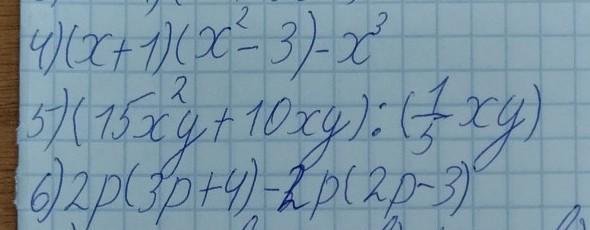 4)(x+1)(x²-3)-x³
5)(15x²y+10xy):(1/5 xy)
6)2p(3p+4)-2p(2p-3)